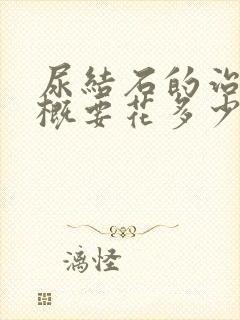 尿結石的治
概要花多少
漓怪